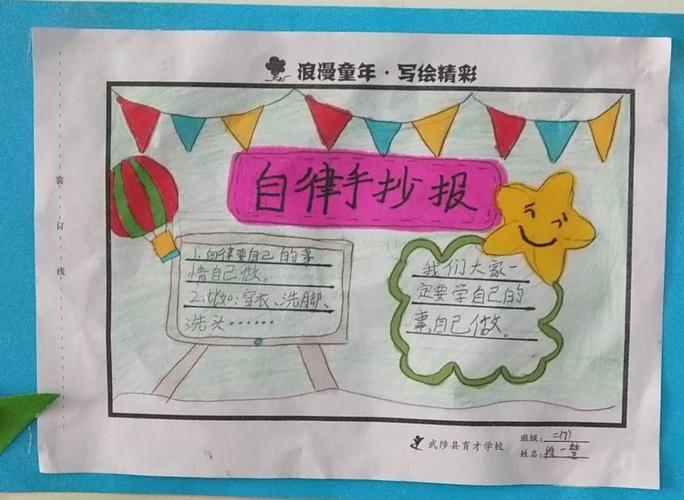 浪漫童年·写绘精彩
自律手抄报
1.自律要自己的事
情自己做。
2.比如:穿衣、洗脚、
洗头……
我们大家一
定要学自己的
事自己做。
装
订
线
武陟县育才学校
班级:二(7)
姓名:段一